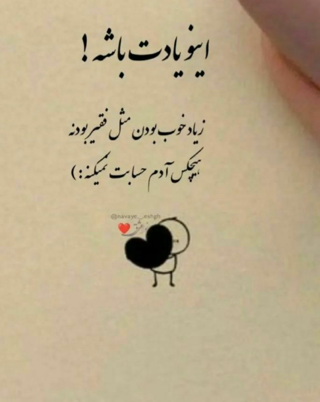 اینو یادت باشه !
زیاد خوب بودن مثل فقیر بودنه
هیچکس آدم حسابت نمیکنه : )
عشق